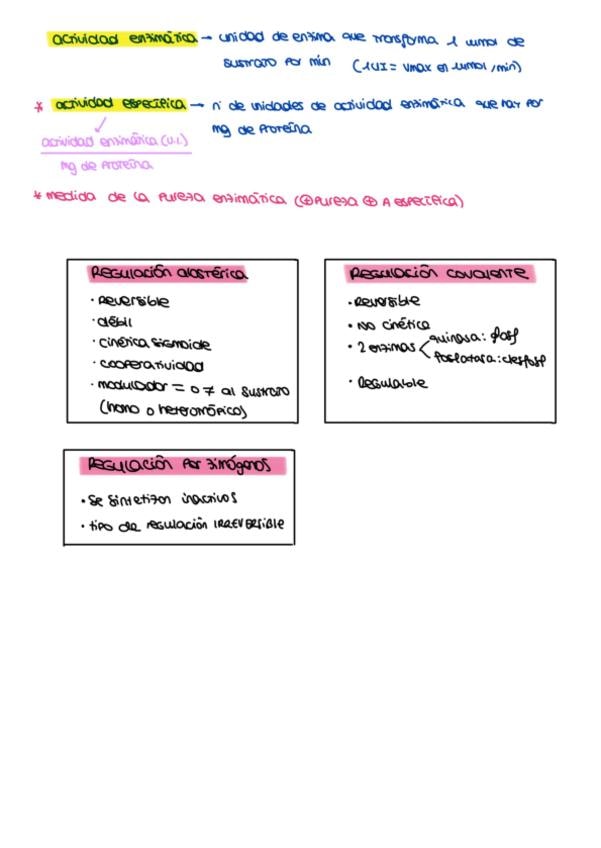 actividad enzimática → unidad de enzima que transforma 1 umol de
sustrato por min (1UI = Vmax en umol/min)
* actividad específica → nº de unidades de actividad enzimática que hay por
mg de proteína
actividad enzimática (U.I.)
mg de proteína
* medida de la pureza enzimática (⊕ pureza ⊕ A específica)
Regulación alostérica
· Reversible
· débil
· cinética sigmoide
· cooperatividad
· modulador = o ≠ al sustrato
(homo o heterotrópico)
Regulación covalente
· Reversible
· No cinética
· 2 enzimas < quinasa: fosf
fosfatasa: desfosf
· Regulable
Regulación por zimógenos
· Se sintetizan inactivos
· tipo de regulación IRREVERSIBLE